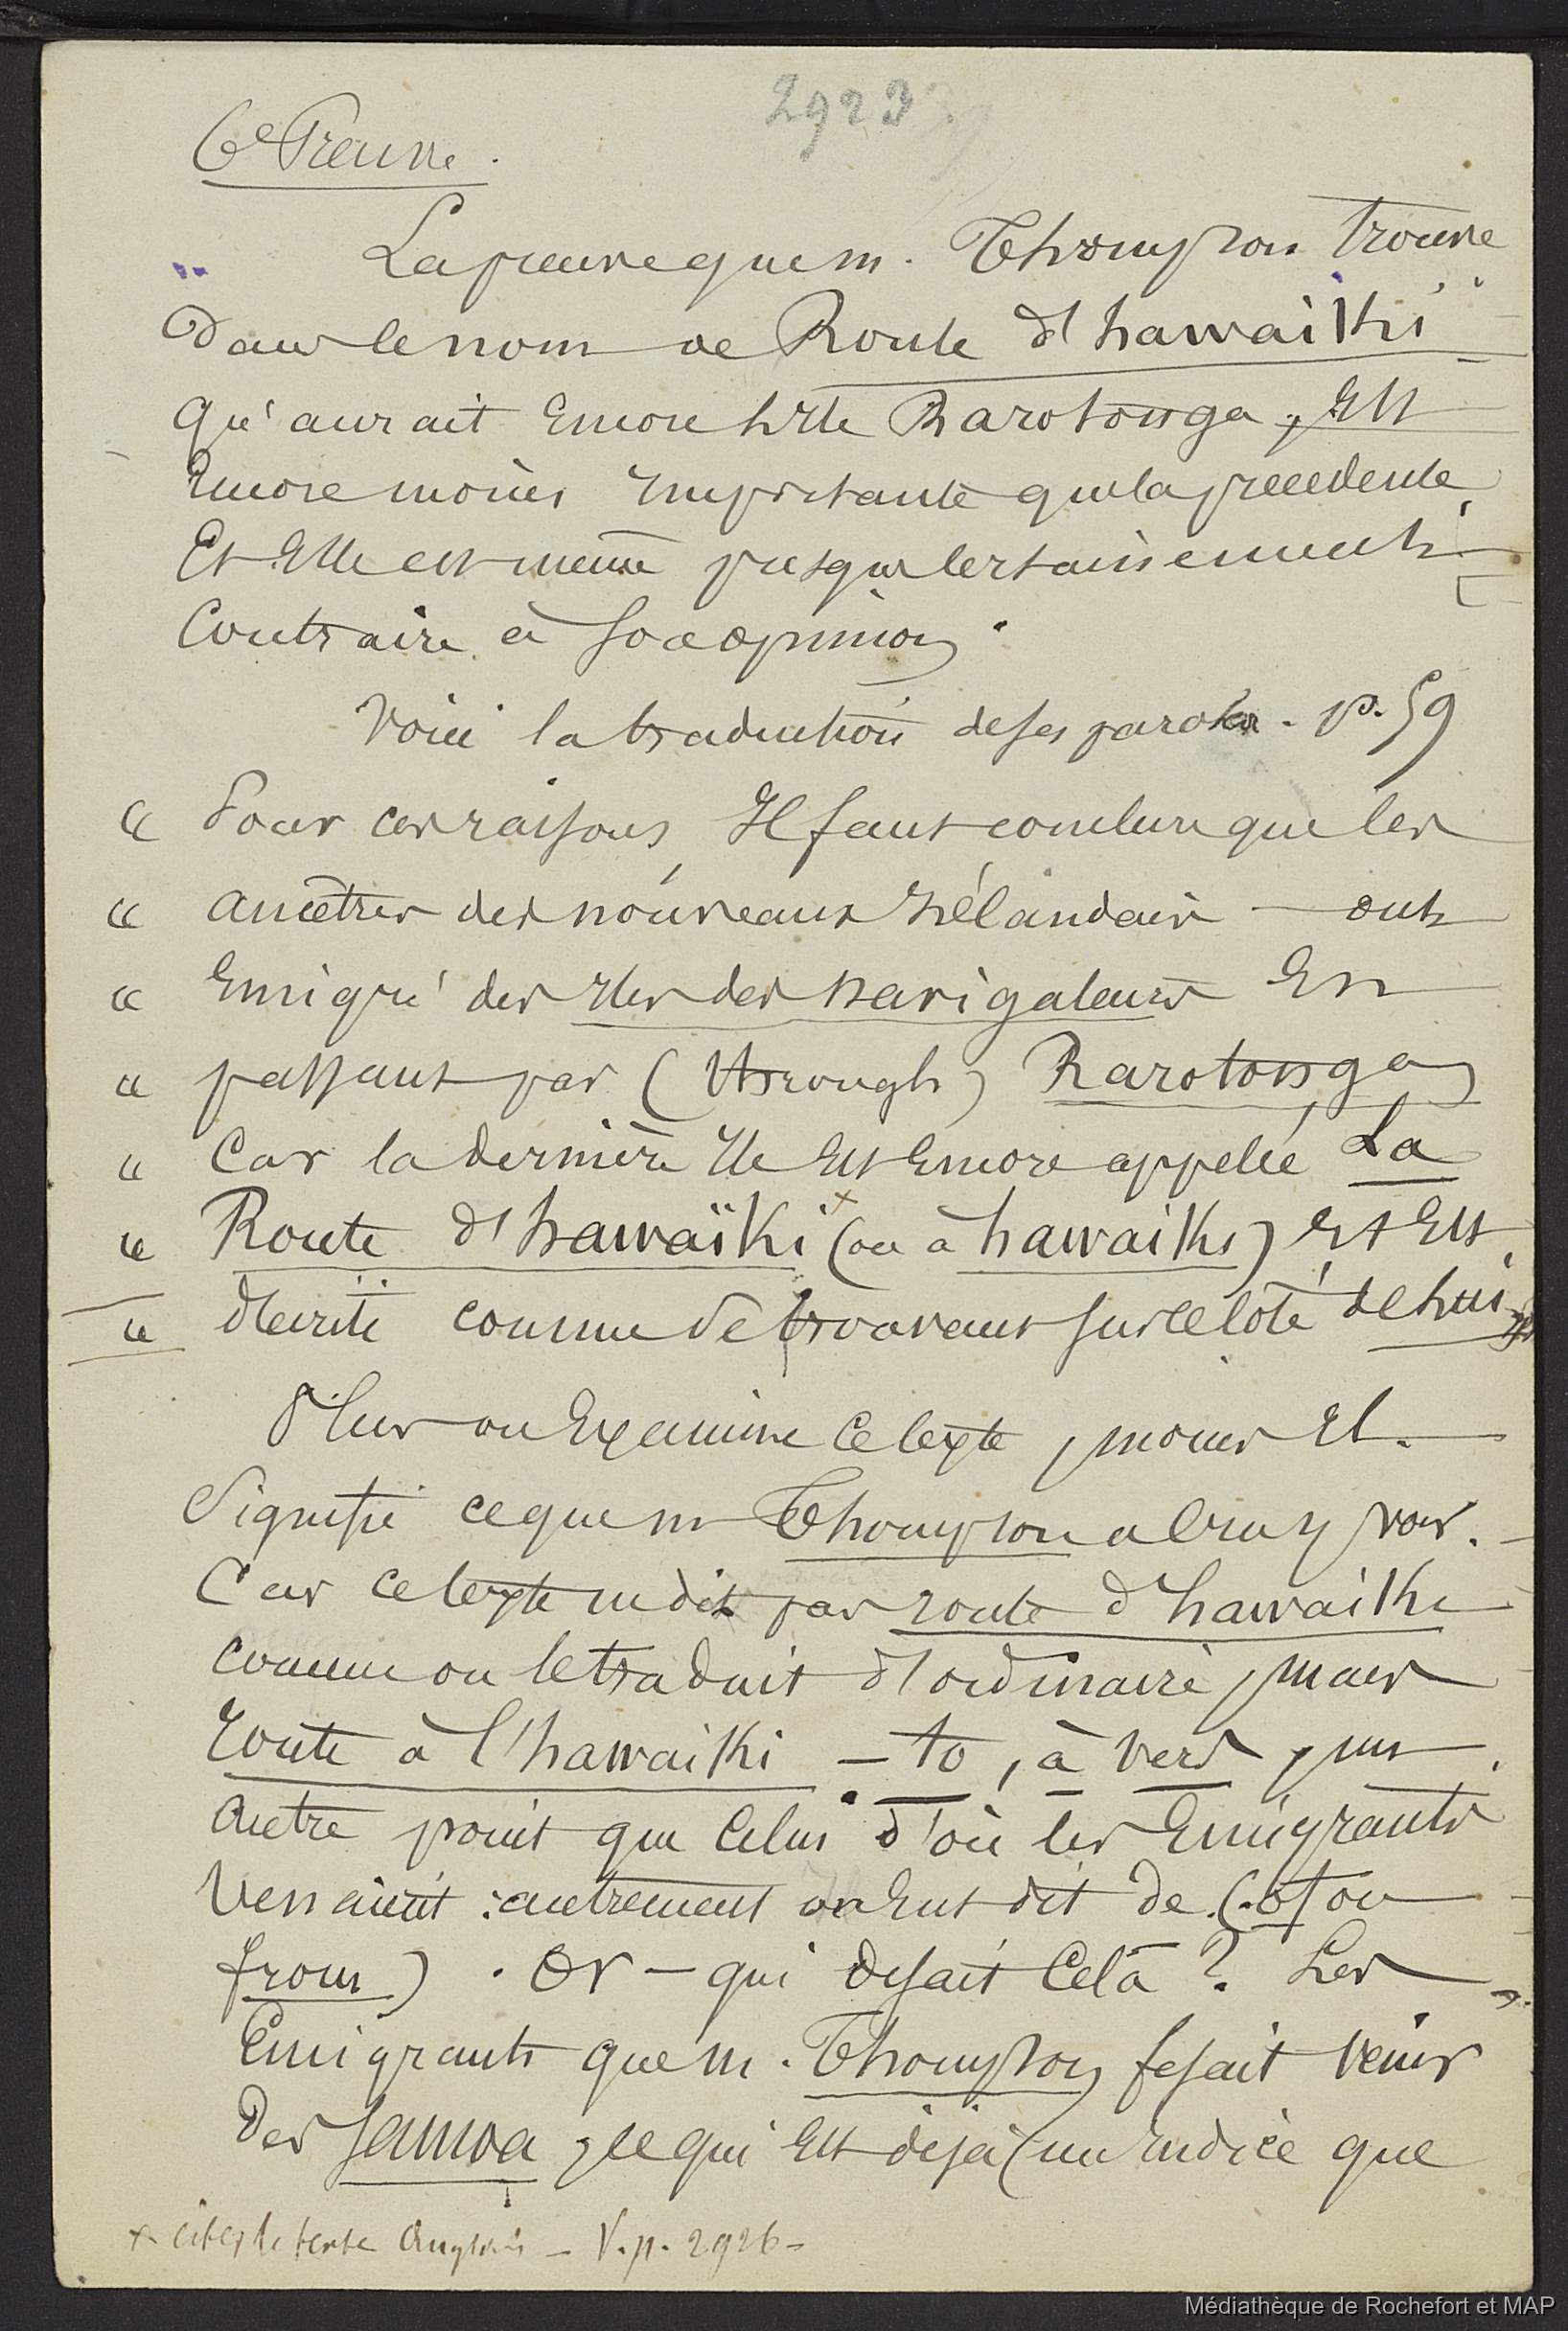 2923
6e Preuve.
La preuve que m. Thompson trouve
Dans le nom de Route d'hawaiki
qu'aurait encore l'île Rarotonga, Est
Encore moins importante que la précédente
Et Elle est même presque certainement
Contraire à son opinion.
Voici la traduction de ses paroles. p. 59
" Pour ces raisons, Il faut conclure que les
" ancêtres des nouveaux zélandais – ont
" Emigré des Iles des navigateurs En
" passant par (through) Rarotonga
" Car la dernière Ile Est Encore appelée La
" Route d'hawaïki x (ou à hawaiki) Et Est
" décrite comme se trouvant sur le côté de
Plus on Examine ce texte, moins Il
Signifie ce que m Thompson a cru y voir.
Car ce texte ne dit pas route d'hawaiki
comme on le traduit d'ordinaire, mais
route à l'hawaiki – to, à vers, un
autre point que celui d'où les Emigrants
Venaient : autrement on Eut dit de (of ou
from). Or – qui disait celà ? Les
Emigrants que m. Thompson fesait venir
Des Samoa, ce qui Est déjà un indice que
x citer le texte Anglais – V. p. 2926 –
Médiathèque de Rochefort et MAP